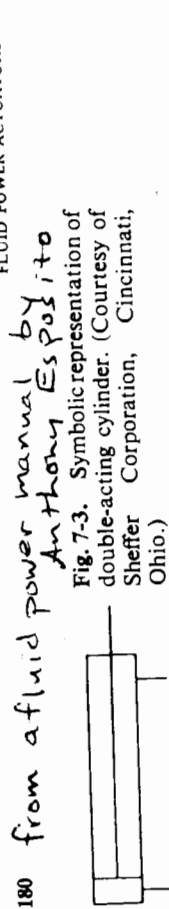 180
from a fluid power manual by
Anthony Esposito
Fig. 7-3. Symbolic representation of
double-acting cylinder. (Courtesy of
Sheffer Corporation, Cincinnati,
Ohio.)